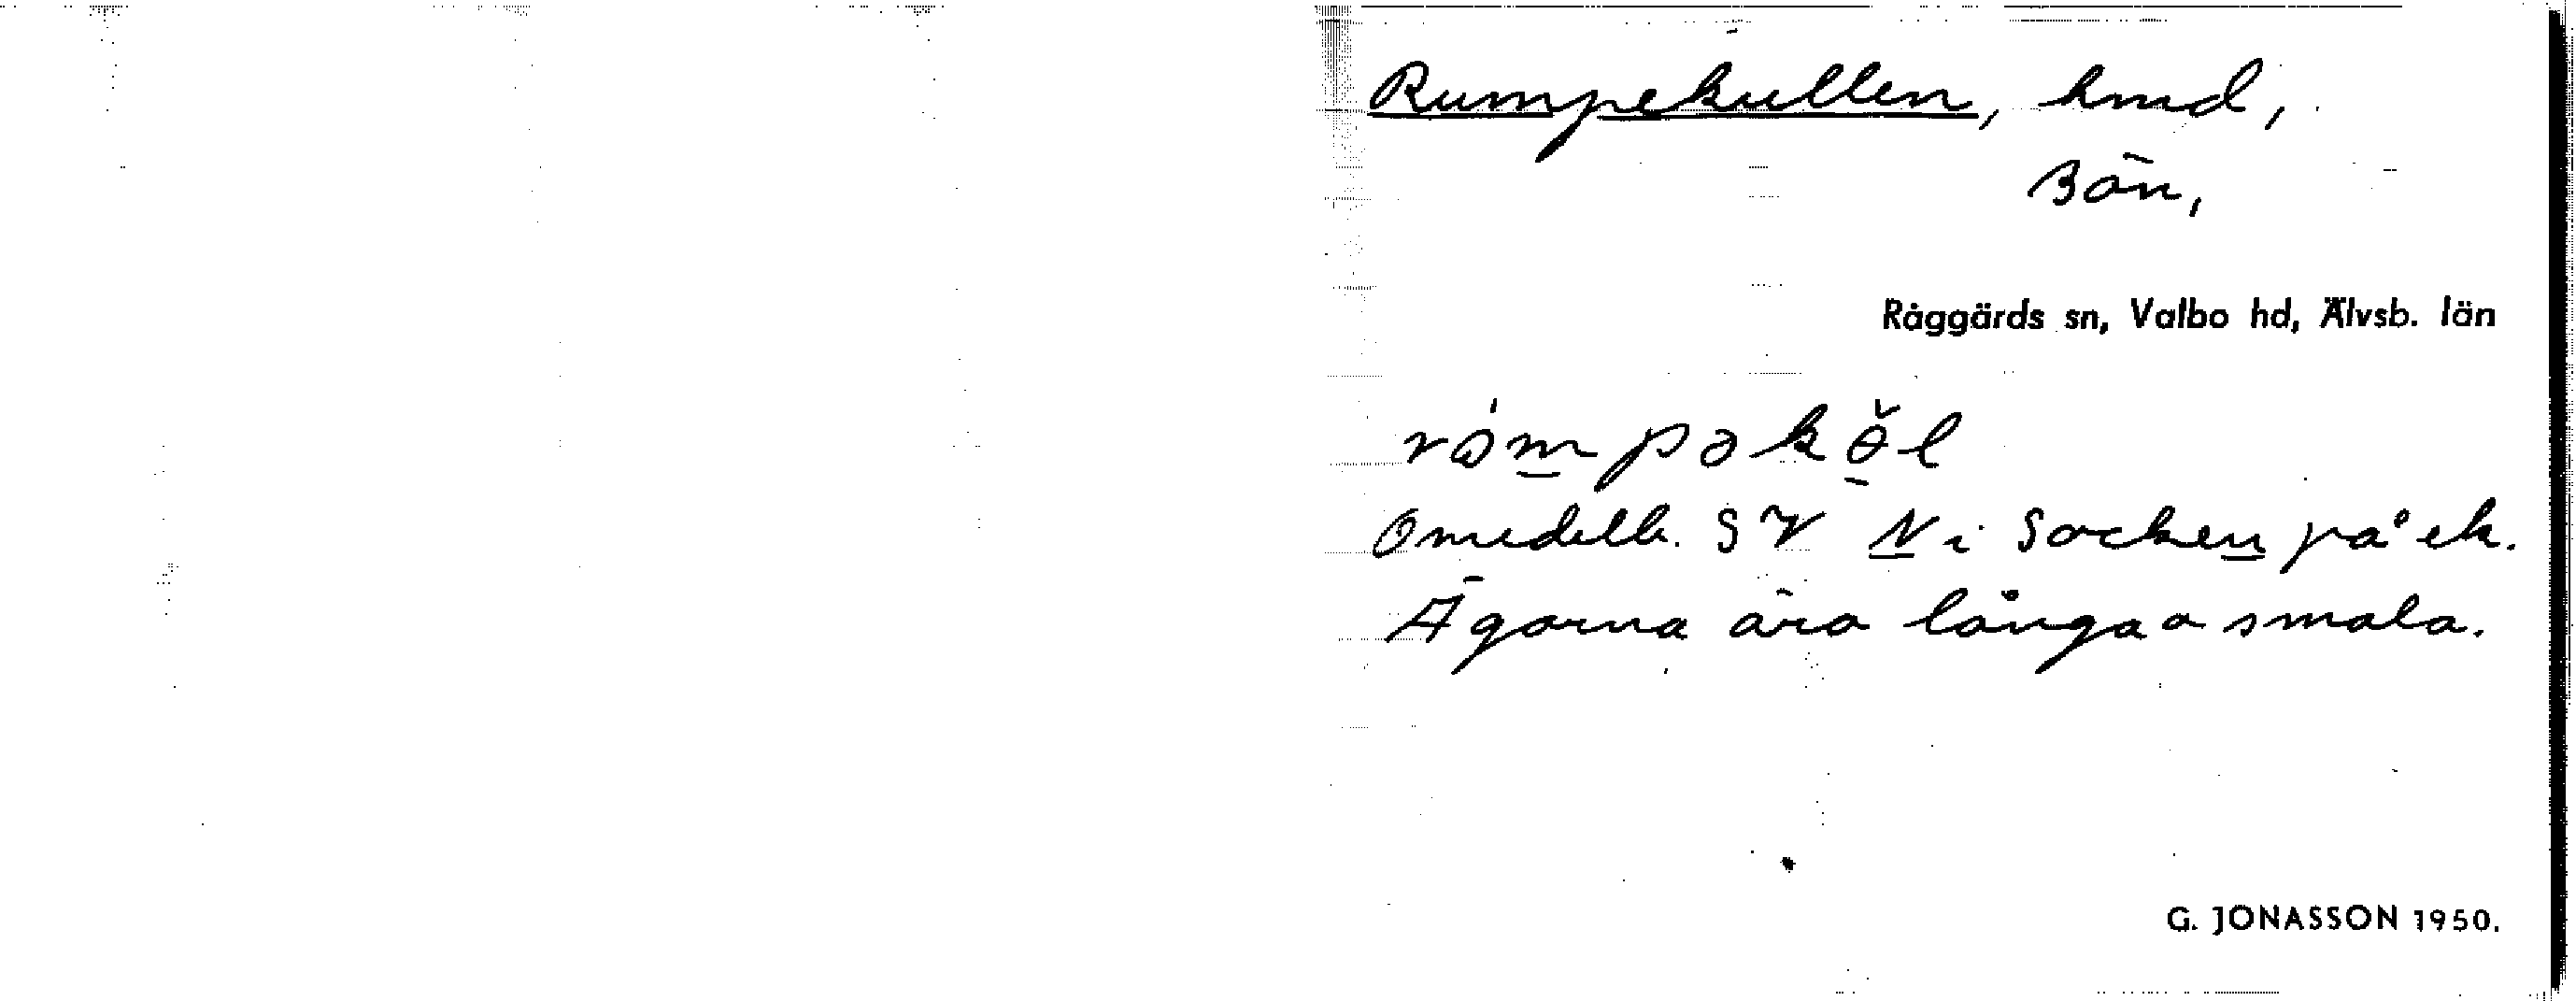 Rumpekullen, hmd,
Bön,
Råggärds sn, Valbo hd, Älvsb. län
römpəkəl
Omedelb. SV N i Socken på ek.
Ägorna äro långa o smala.
G. JONASSON 1950.